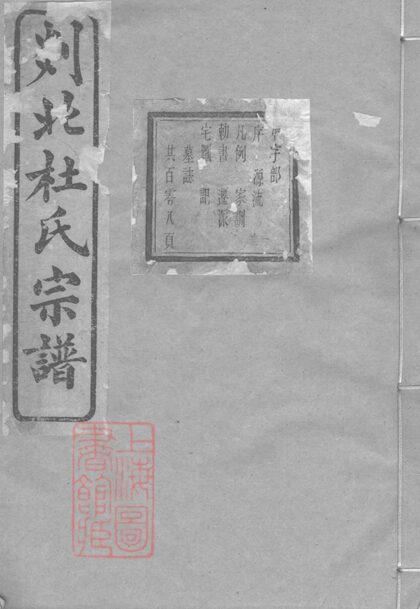 剡北杜氏宗譜
字部
序 源流
凡例 家訓
勅書 派
宅 記
墓誌
共百零八頁
上海圖
書館藏